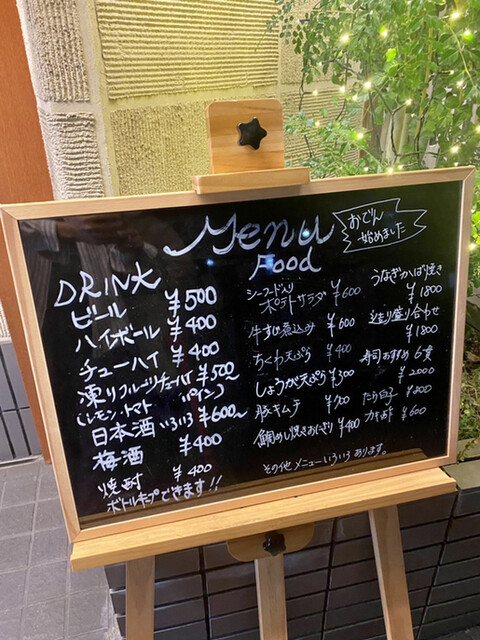 Menu
おでん
始めました
DRINK
ビール ¥500
ハイボール ¥400
チューハイ ¥400
凍りフルーツチューハイ ¥500~
(レモン・トマト パイン)
日本酒 いろいろ ¥600~
梅酒 ¥400
焼酎 ¥400
ボトルキープできます!!
Food
シーフード入り
ポテトサラダ ¥600
牛すじ煮込み ¥600
ちくわ天ぷら ¥400
しょうが天ぷら ¥300
豚キムチ
鯛めし焼きおにぎり ¥400
うなぎかば焼き
¥1800
造り盛り合わせ
¥1800
寿司おすすめ 6貫
¥2000
たら白子 ¥800
カキ酢 ¥600
その他 メニューいろいろ あります。